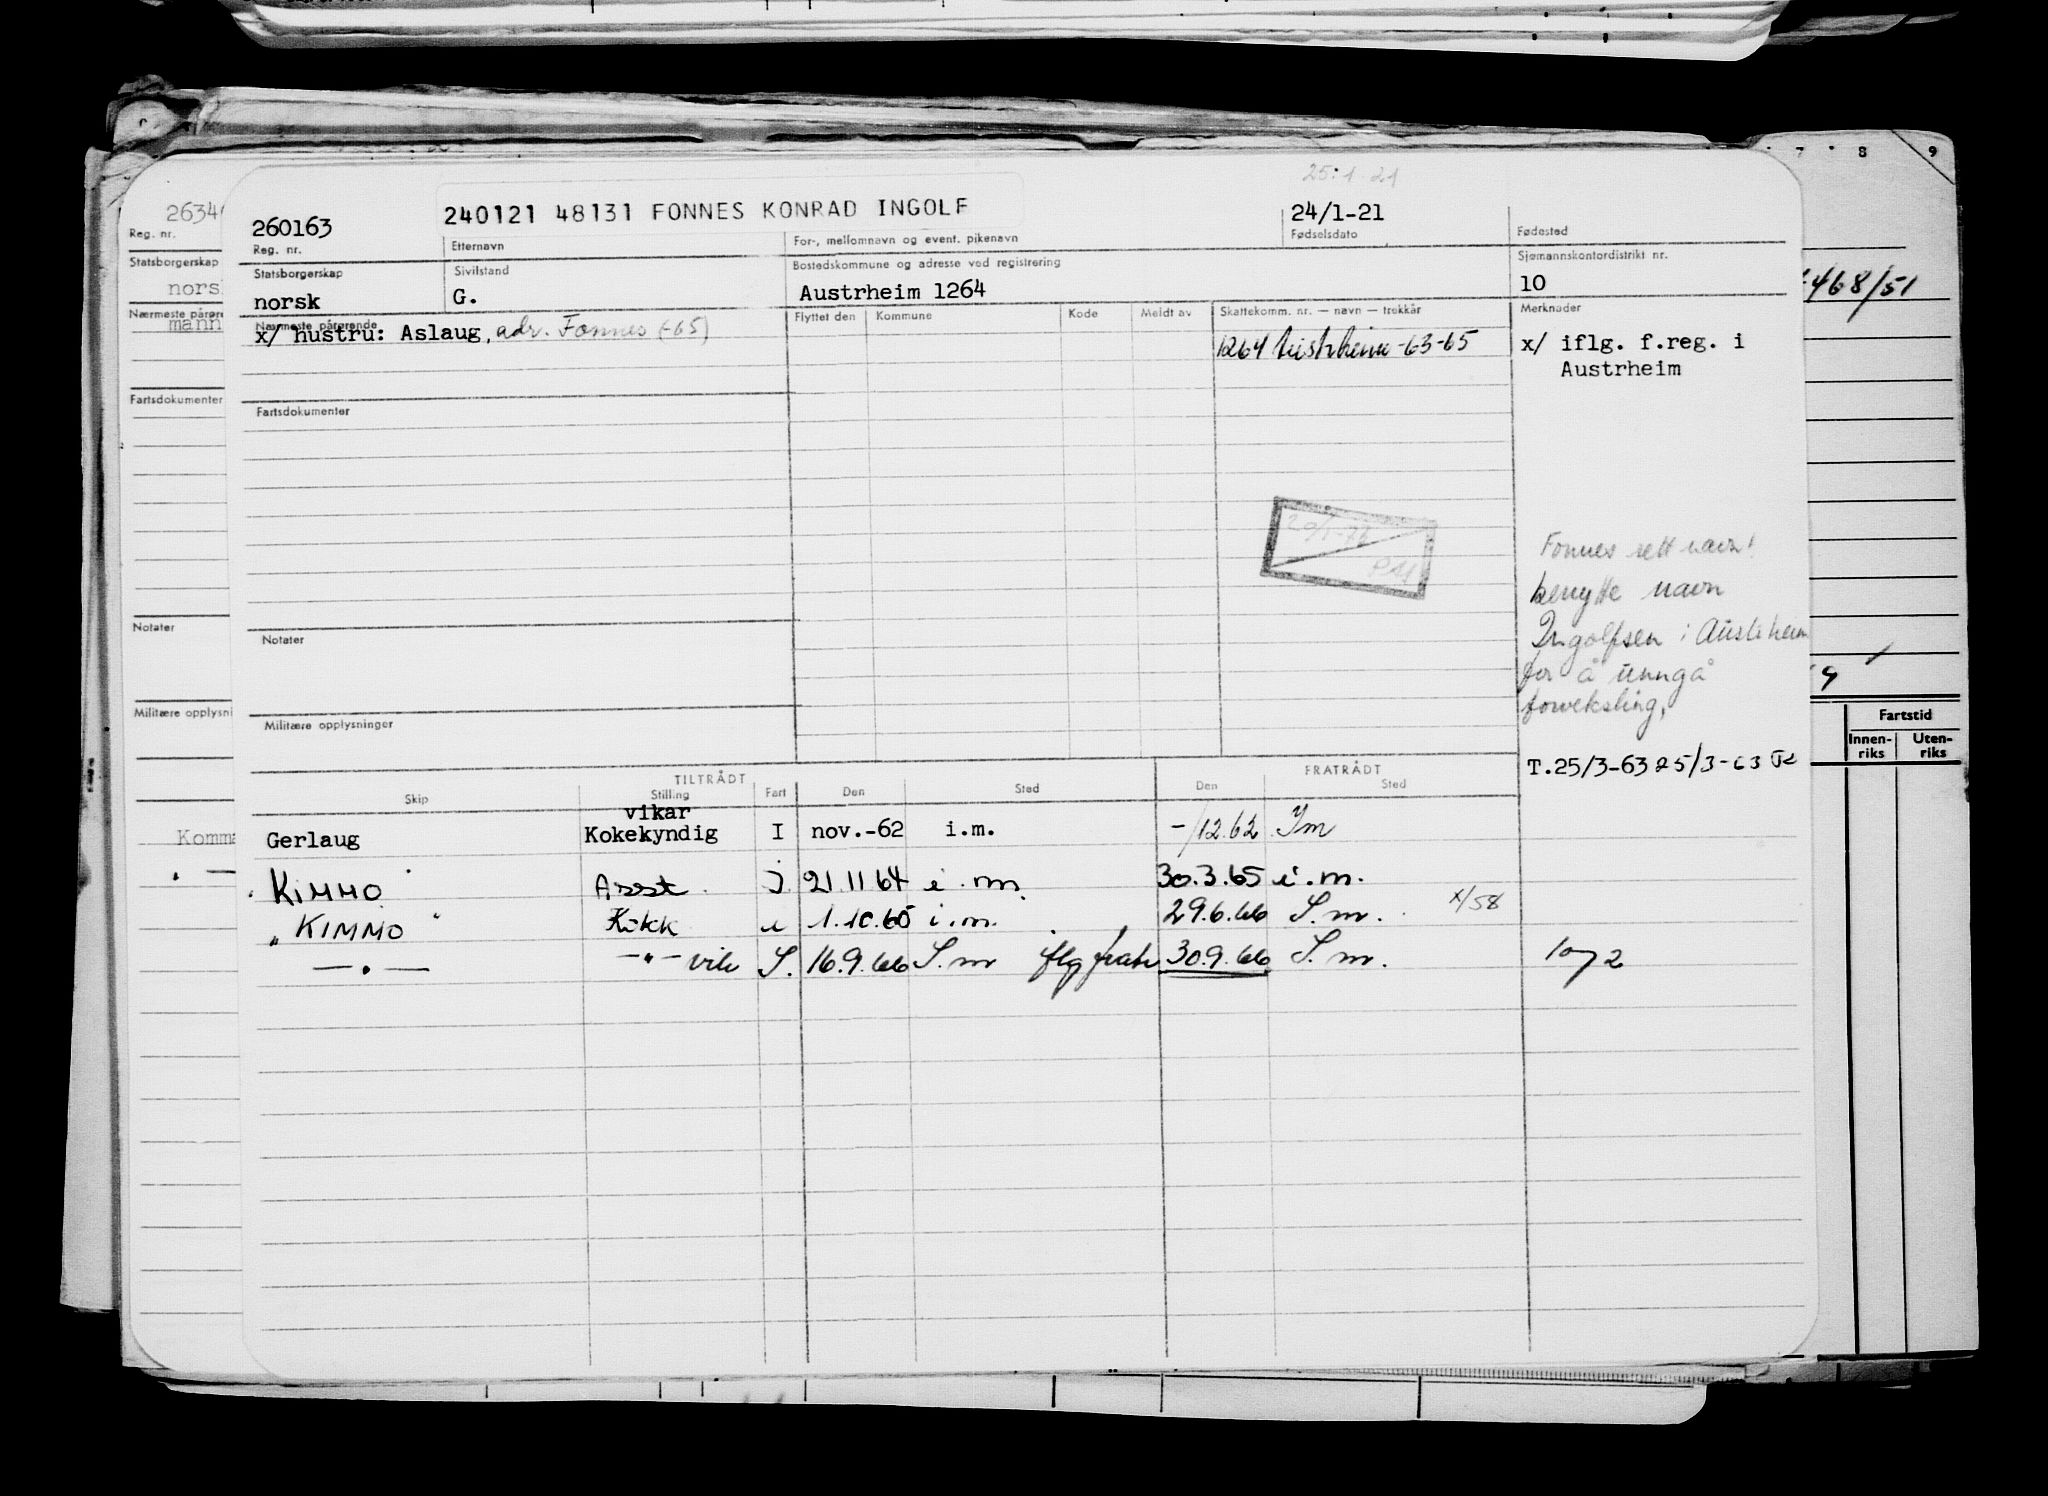 25.1.21
260163 240121 48131 FONNES KONRAD INGOLF 24/1-21
Reg. nr. Etternavn For-, mellomnavn og event. pikenavn Fødselsdato Fødested
Statsborgerskap Sivilstand Bostedskommune og adresse ved registrering Sjømannskontordistrikt nr.
norsk G. Austrheim 1264 10
Nærmeste pårørende Flyttet den Kommune Kode Meldt av Skattekomm. nr. — navn — trekkår Merknader
x/ hustru: Aslaug, adr. Fonnes (-65) 1264 Austrheim -63-65 x/ iflg. f.reg. i
Austrheim
Fartsdokumenter
Fonnes rett navn!
benytte navn
Ingolfsen i Austrheim
for å unngå
forveksling,
Notater
Militære opplysninger
T.25/3-63 25/3-63
TILTRÅDT FRATRÅDT
Skip Stilling Fart Den Sted Den Sted
vikar
Gerlaug Kokekyndig I nov.-62 i.m. -/12.62 Im
KIMMO Asst. I 21.11 64 i.m. 30.3.65 i.m.
"KIMMO" Kokk i 1.10.65 i.m. 29.6.66 S.m. x/58
—"— —"— vik S. 16.9.66 S.m iflg fratr 30.9.66 S.m.
2634
Reg. nr.
Statsborgerskap
norsk
Nærmeste pårøre
mann
Fartsdokumenter
Notater
Militære opplysni
Komma
7 8 9
468/51
9
Fartstid
Innen-
riks
Uten-
riks